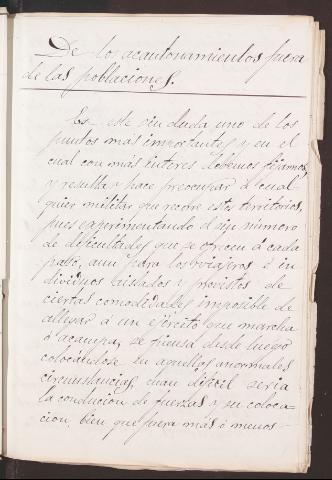 De los acantonamientos fuera
de las poblaciones.
Es este sin duda uno de los
puntos más importantes y en el
cual con más interes debemos fijarnos,
y resulta o hace preocupar á cual
quier militar que recorre estos territorios,
pues experimentando el sin número
de dificultades que se ofrecen á cada
paso, aun para los viajeros ó in
dividuos aislados y provistos de
ciertas comodidades imposible de
allegar á un ejército que marcha
ó acampa, se piensa desde luego
colocándose en aquellas anormales
circunstancias, cuan dificil seria
la conducion de fuerzas y su coloca-
cion, bien que fuera más ó menos-